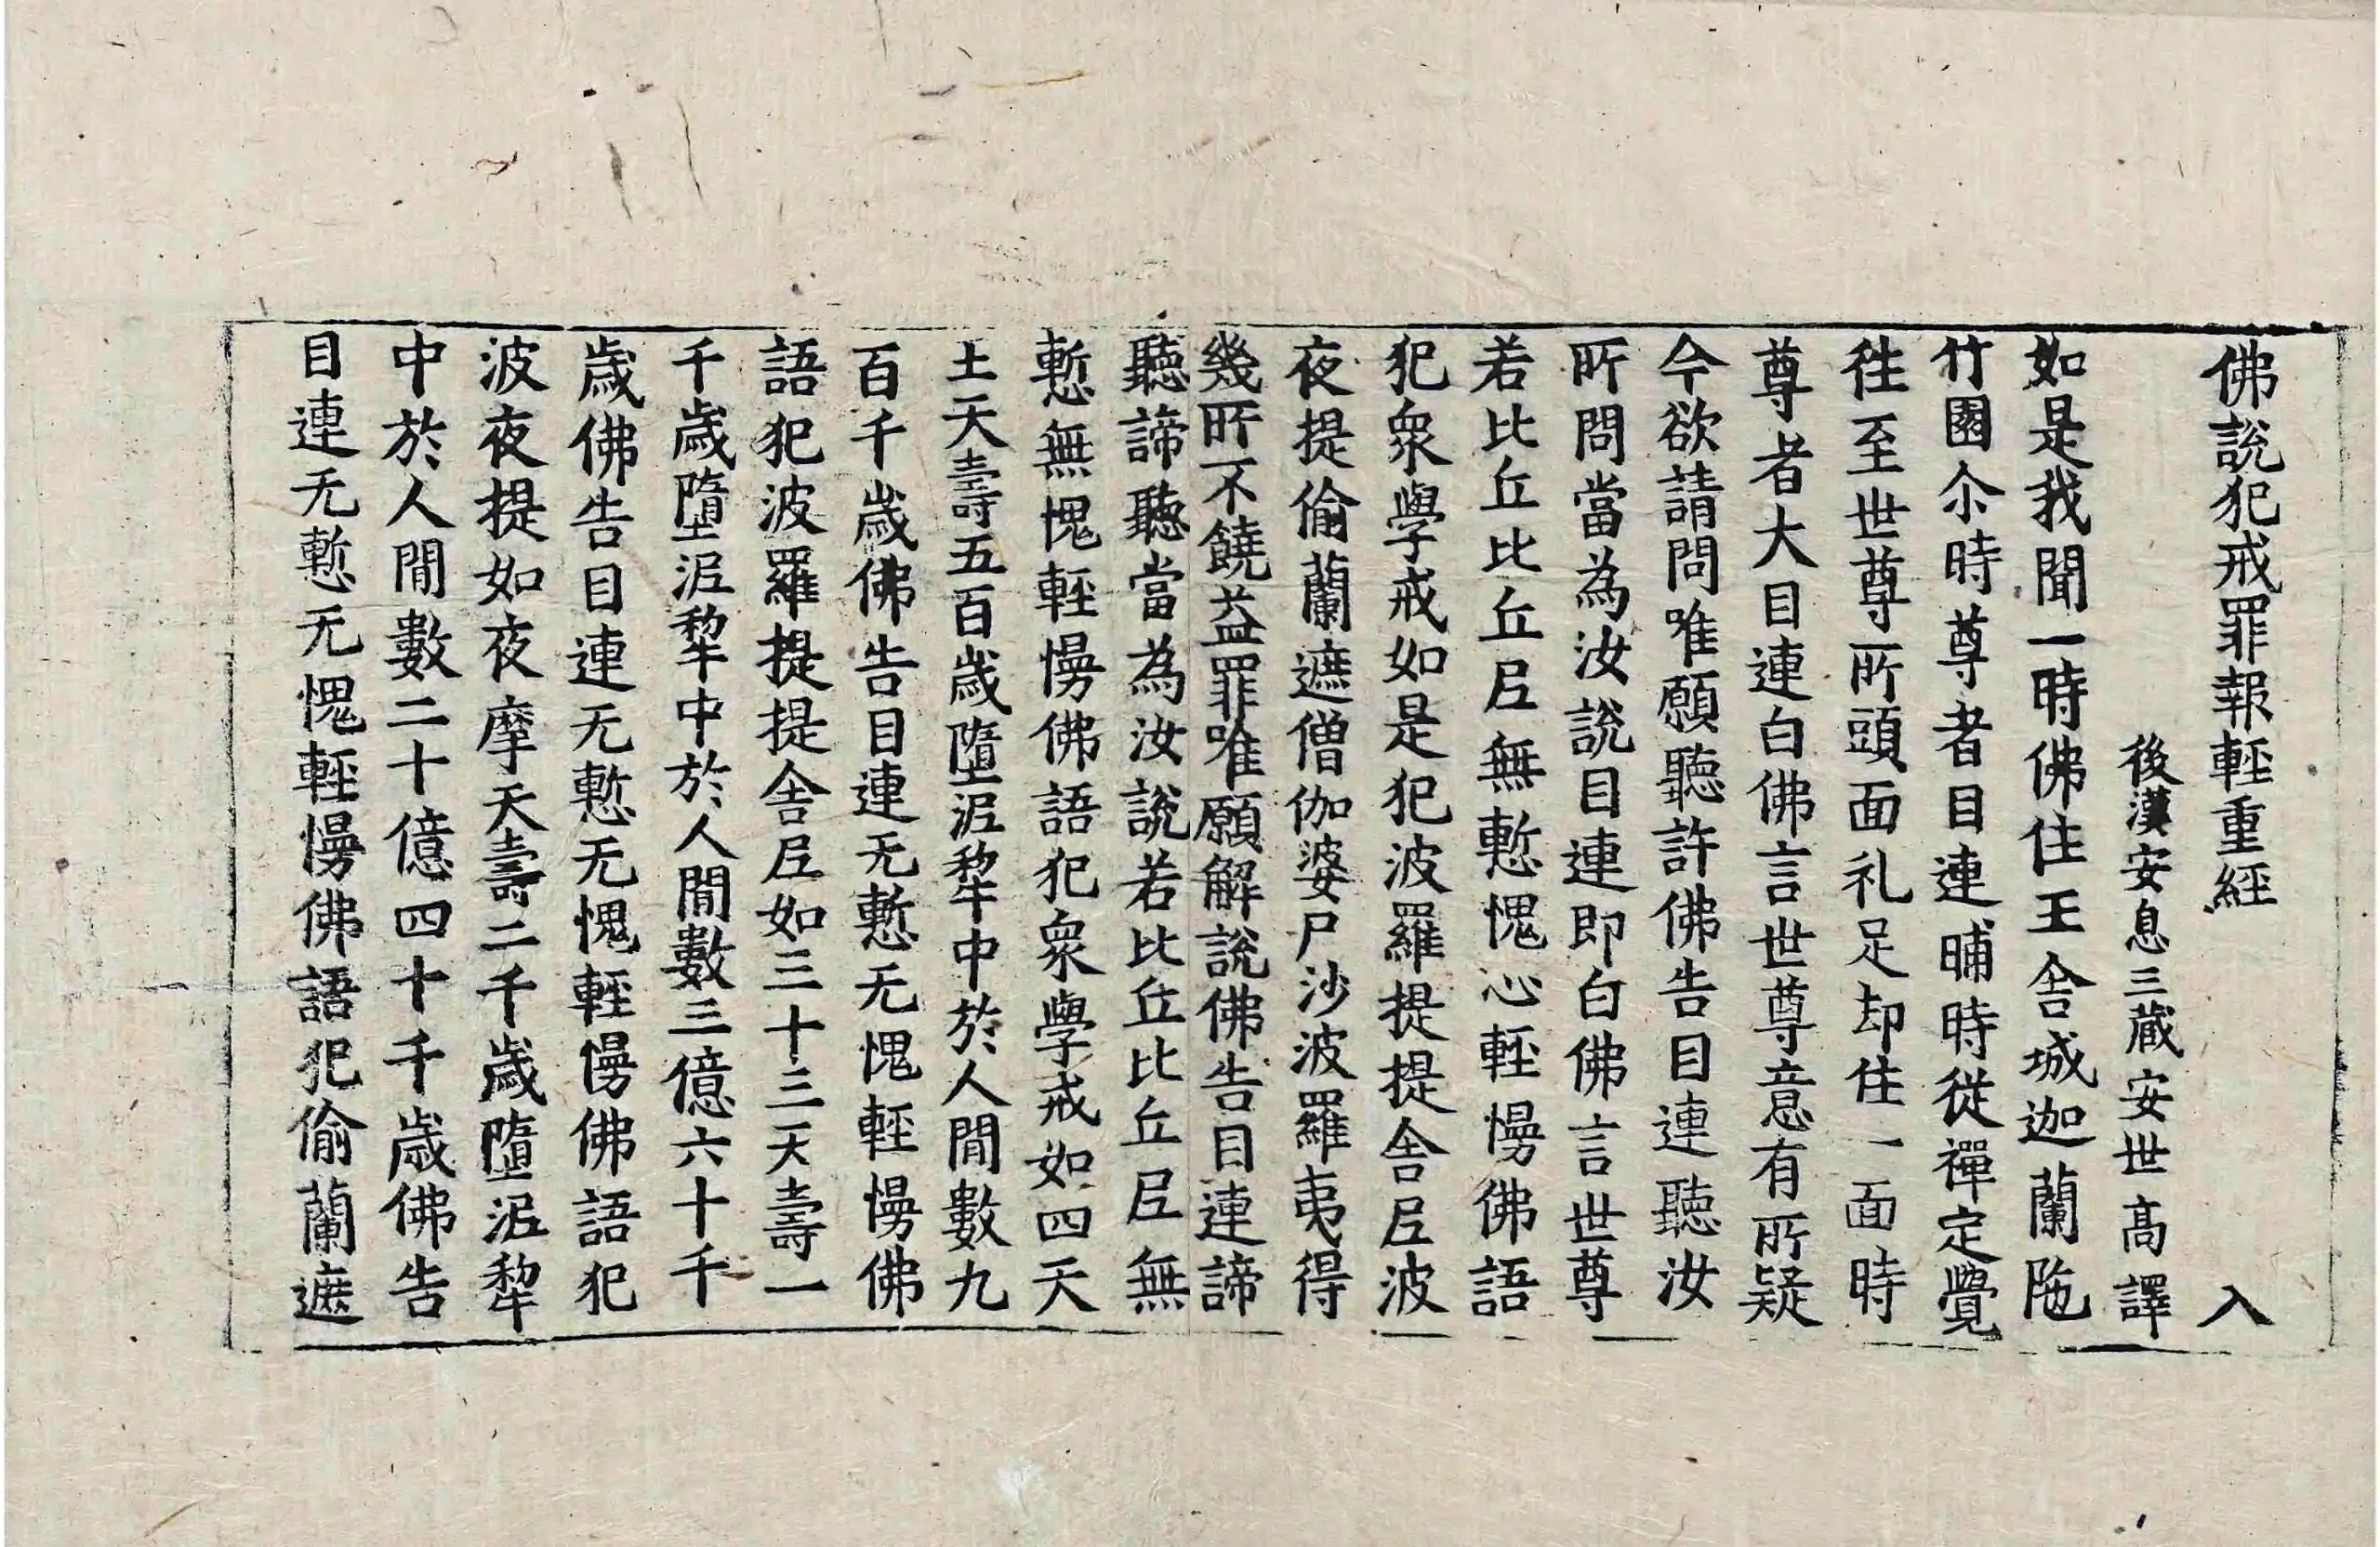 佛說犯戒罪報輕重經 入
後漢安息三藏安世高譯
如是我聞一時佛住王舍城迦蘭陁
竹園尒時尊者目連晡時從禪定覺
往至世尊所頭面礼足却住一面時
尊者大目連白佛言世尊意有所疑
今欲請問唯願聽許佛告目連聽汝
所問當為汝說目連即白佛言世尊
若比丘比丘尼無慙愧心輕慢佛語
犯衆學戒如是犯波羅提提舍尼波
夜提偷蘭遮僧伽婆尸沙波羅夷得
幾所不饒益罪唯願解說佛告目連諦
聽諦聽當為汝說若比丘比丘尼無
慙無愧輕慢佛語犯衆學戒如四天
王天壽五百歲墮泥犂中於人間數九
百千歲佛告目連无慙无愧輕慢佛
語犯波羅提提舍尼如三十三天壽一
千歲墮泥犂中於人間數三億六十千
歲佛告目連无慙无愧輕慢佛語犯
波夜提如夜摩天壽二千歲墮泥犂
中於人間數二十億四十千歲佛告
目連无慙无愧輕慢佛語犯偷蘭遮